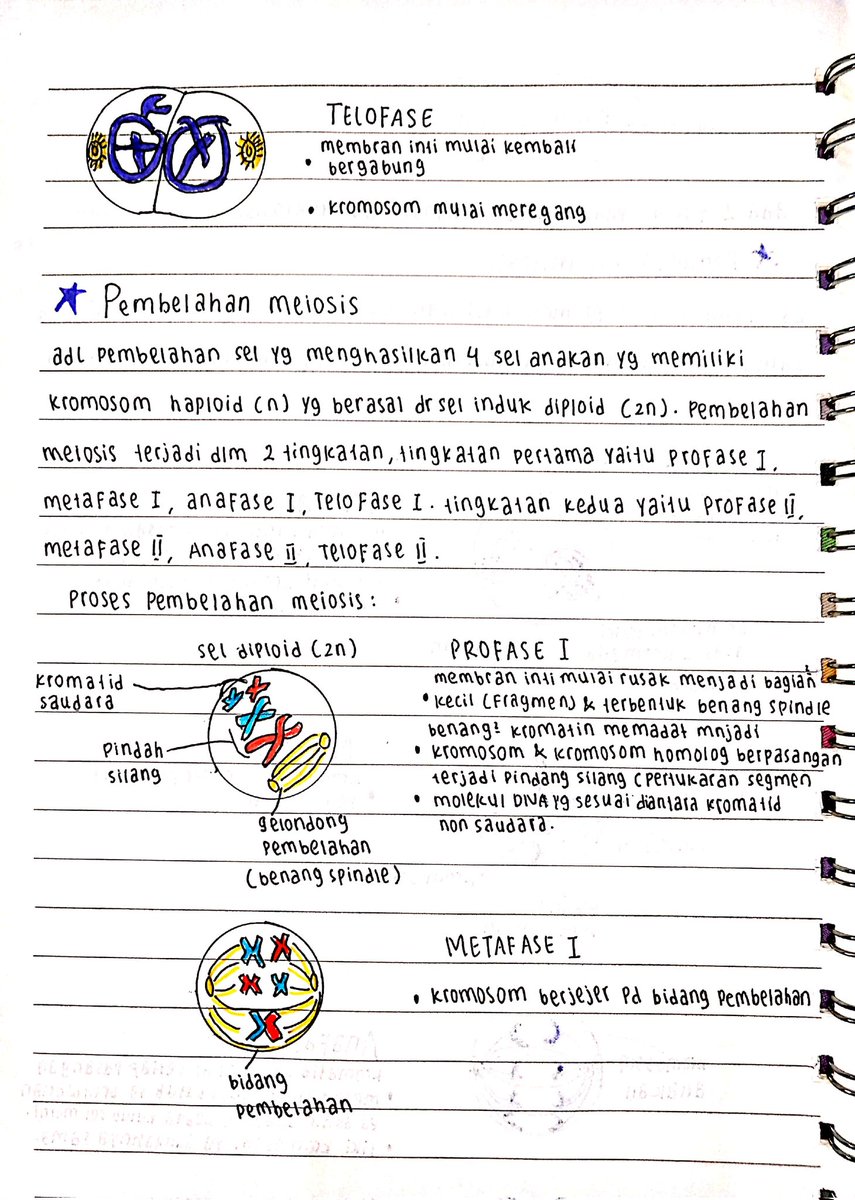 TELOFASE
membran inti mulai kembali
• bergabung
• kromosom mulai meregang
Pembelahan meiosis
adl pembelahan sel yg menghasilkan 4 sel anakan yg memiliki
kromosom haploid (n) yg berasal dr sel induk diploid (2n). pembelahan
meiosis terjadi dlm 2 tingkatan, tingkatan pertama yaitu profase I,
metafase I, anafase I, Telofase I. tingkatan kedua yaitu profase II,
metafase II, Anafase II, Telofase II.
Proses pembelahan meiosis :
sel diploid (2n)
kromatid
saudara
pindah
silang
gelondong
pembelahan
(benang spindle)
PROFASE I
membran inti mulai rusak menjadi bagian²
• kecil (fragmen) & terbentuk benang spindle
benang² kromatin memadat mnjadi
• kromosom & kromosom homolog berpasangan
terjadi pindang silang (pertukaran segmen
• molekul DNA yg sesuai diantara kromatid
non saudara.
METAFASE I
• kromosom berjejer pd bidang pembelahan
bidang
pembelahan